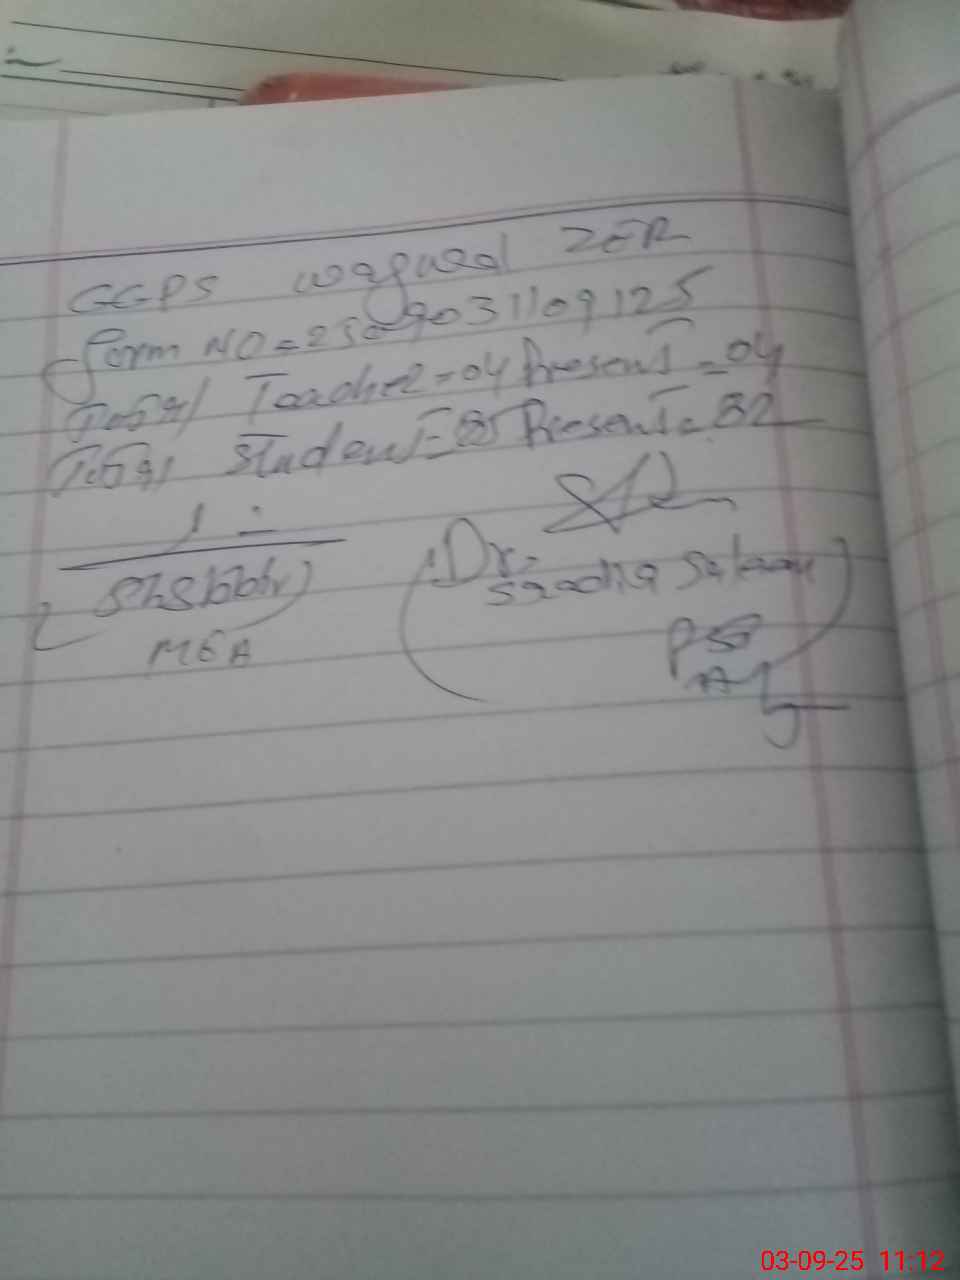 GGPS wagwal ZER
form NO = 2509031109125
Total Teacher = 04 Present = 04
Total Student = 85 Present = 82
Dr.
Saadia Salaam
MEA
PST
03-09-25 11:12